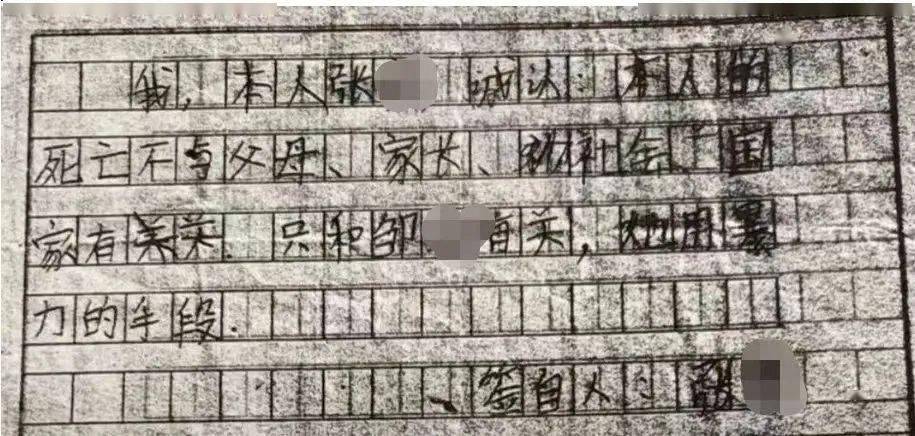 我,本人张 诚认:本人的
死亡不与父母、家长、社会、国
家有关. 只和邹 有关,她用暴
力的手段.
签自人:张